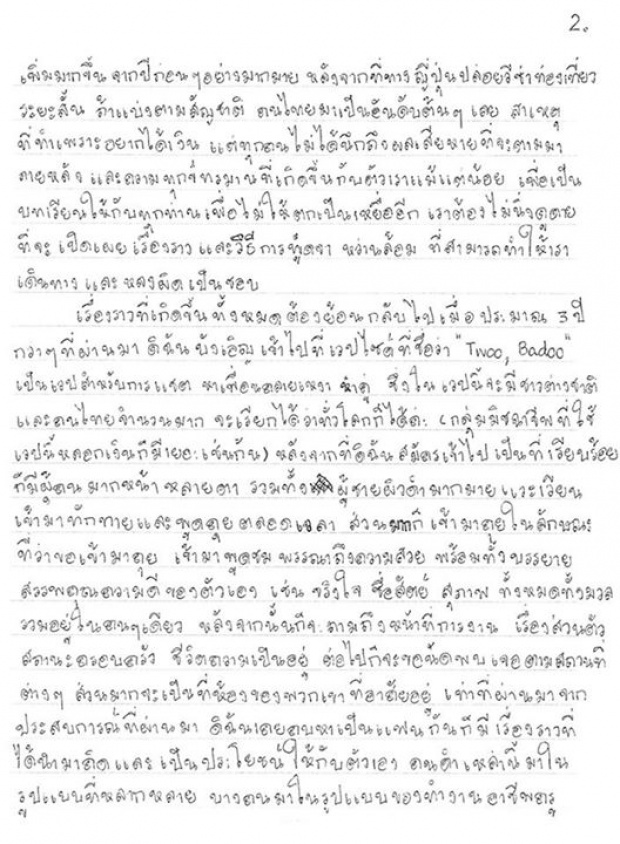 2.
เพิ่มมากขึ้น จากปีก่อนๆอย่างมากมาย หลังจากที่ทางญี่ปุ่นปล่อยวีซ่าท่องเที่ยว
ระยะสั้น ถ้าแบ่งตามสัญชาติ คนไทยมาเป็นอันดับต้นๆ เลย สาเหตุ
ที่ทำเพราะอยากได้เงิน แต่ทุกคนไม่ได้นึกถึงผลเสียหายที่จะตามมา
ภายหลัง และความทุกข์ทรมานที่เกิดขึ้นกับตัวเราแม้แต่น้อย เพื่อเป็น
บทเรียนให้กับทุกท่านเพื่อไม่ให้ตกเป็นเหยื่ออีก เราต้องไม่นิ่งดูดาย
ที่จะ เปิดเผยเรื่องราว และวิธีการพูดจา หว่านล้อม ที่สามารถทำให้เรา
เดินทาง และ หลงผิด เป็นชอบ
เรื่องราวที่เกิดขึ้นทั้งหมด ต้องย้อนกลับไปเมื่อ ประมาณ 3 ปี
กว่าๆที่ผ่านมา ดิฉัน บังเอิญ เข้าไปที่เวปไซด์ ที่ชื่อว่า "Twoo, Badoo"
เป็นเวปสำหรับการแชต หาเพื่อนคลายเหงา หาคู่ ซึ่งในเวปนี้จะมีชาวต่างชาติ
และคนไทยจำนวนมาก จะเรียกได้ว่าทั่วโลกก็ได้ค่ะ (กลุ่มมิชฉาชีพที่ใช้
เวปนี้หลอกเงินก็มีเยอะเช่นกัน) หลังจากที่ดิฉันสมัครเข้าไปเป็นที่เรียบร้อย
ก็มีผู้คนมากหน้า หลายตา รวมทั้ง ผู้ชายผิวดำมากมาย แวะเวียน
เข้ามาทักทายและพูดคุยตลอดเวลา ส่วนมากก็เข้ามาคุยในลักษณะ
ที่ว่าขอเข้ามาคุย เข้ามาพูดชม พรรณาถึงความสวย พร้อมทั้งบรรยาย
สรรพคุณความดีของตัวเอง เช่น จริงใจ ซื่อสัตย์ สุภาพ ทั้งหมดทั้งมวล
รวมอยู่ในคนๆเดียว หลังจากนั้นก็จะถามถึงหน้าที่การงาน เรื่องส่วนตัว
สถานะครอบครัว ชีวิตความเป็นอยู่ ต่อไปก็จะขอนัดพบเจอตามสถานที่
ต่างๆ ส่วนมากจะเป็นที่ห้องของพวกเขาที่อาศัยอยู่ เท่าที่ผ่านมาจาก
ประสบการณ์ที่ผ่านมา ดิฉันเคยคบหาเป็นแฟนกันก็มี เรื่องราวที่
ได้นำมาคิดและเป็นประโยชน์ให้กับตัวเอง คนดำเหล่านี้มาใน
รูปแบบที่หลากหลาย บางคนมาในรูปแบบของทำงานอาชีพครู